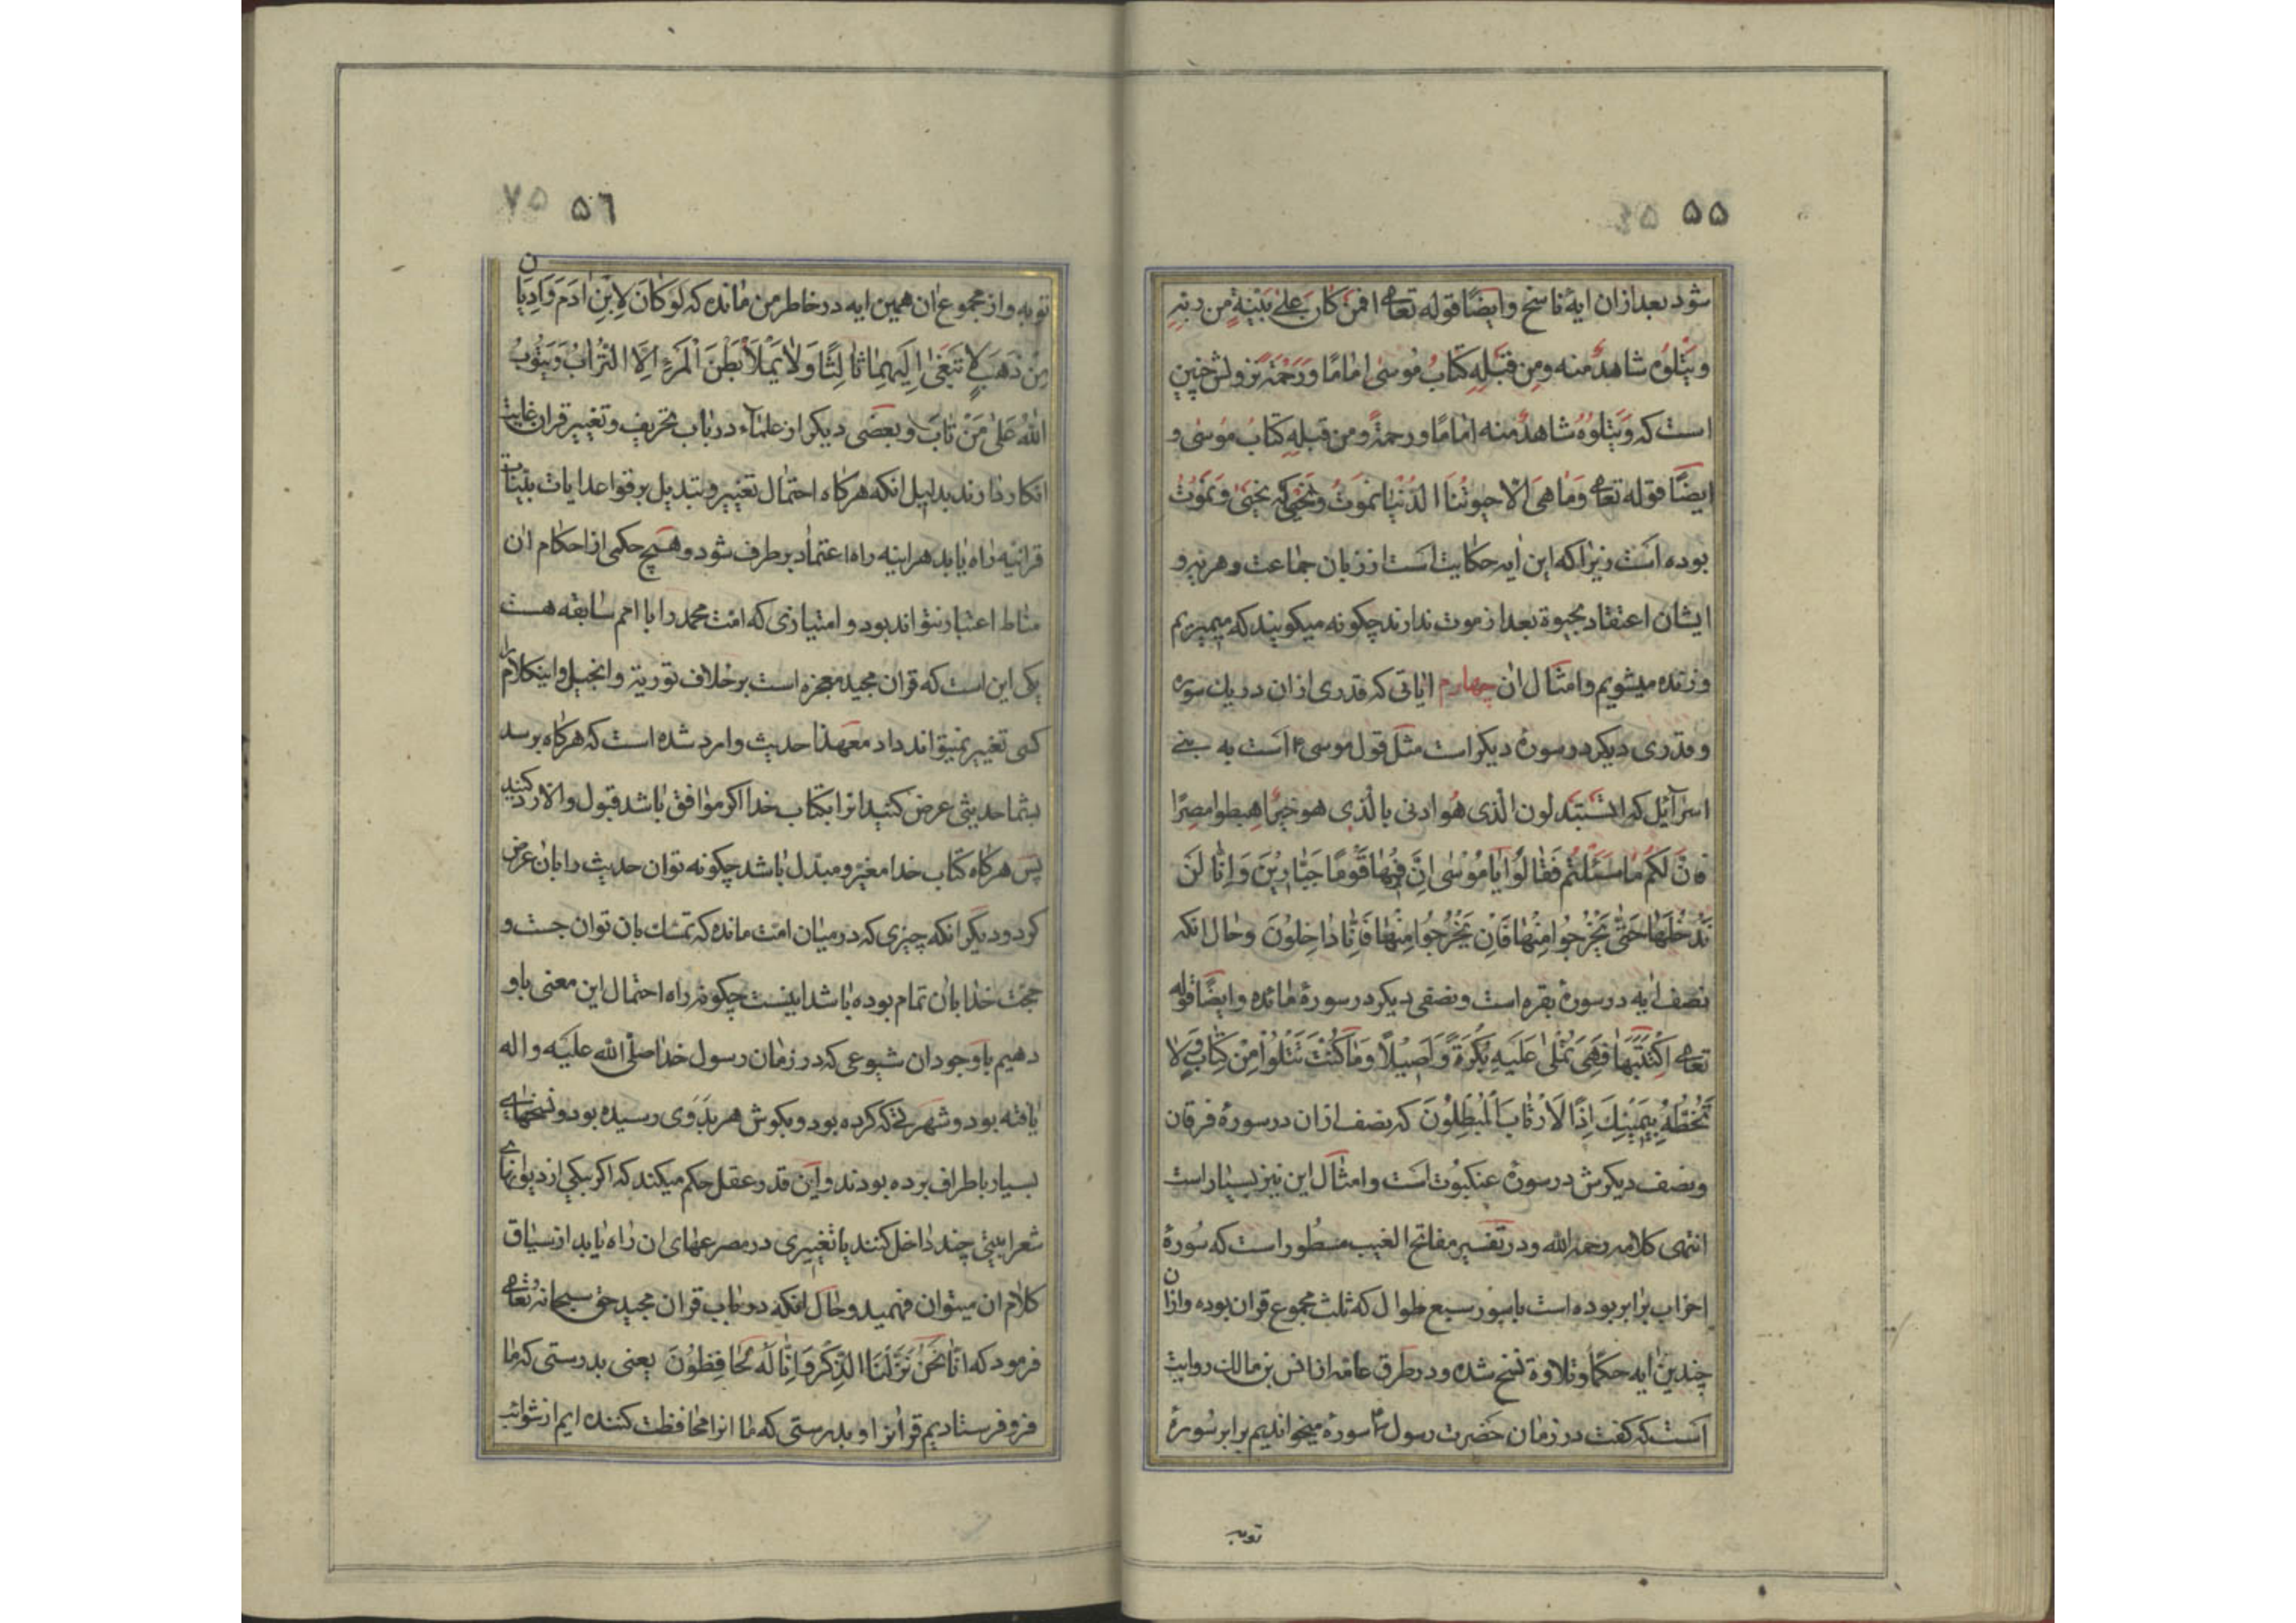 ۵۵
شود بعد ازان ایهٔ ناسخ وایضًا قوله تعالی افمن کان علی بَیّنةٍ من ربّهِ
ویَتْلُوه شاهدٌ منه ومِن قَبْلِهِ کتابُ مُوسٰی اِمٰامًا ورَحْمَة نزولش چنین
است که وَیَتلُوهُ شاهدٌ منه امٰامًا ورحمةً ومن قبلِهِ کتابُ مُوسٰی و
ایضًا قوله تعالی وَمٰا هیَ الّا حیوتُنَا الدُّنیا نموتُ ونَحْیٰی که نحیٰی ونَمُوتُ
بوده است زیرا که این ایه حکایت است از زبان جماعت دهریه و
ایشان اعتقاد بحیوة بعد از موت ندارند چکونه میکویند که میمیریم
وزنده میشویم وامثال ان چهارم ایاتی که قدری ازان در یك سوره
وقدری دیکر در سورهٔ دیکر است مثل قول موسی ۴ است به بنے
اسرآئیل که اتَستَبْدِلون الّذی هُوَ ادنی بالّذی هو خیرٌ اهبطوا مِصرًا
فاِنَّ لَکُم مٰا سَئَلْتُم فَقٰالُوا یٰا مُوسٰی اِنَّ فیهٰا قَوْمًا جَبّٰارینَ وَاِنّٰا لَنْ
نَدْخُلَهٰا حَتّٰی یَخْرُجُوا مِنْهٰا فَاِنْ یَخْرُجُوا مِنْهٰا فَاِنّٰا دٰاخِلُونَ وحال انکه
نصف ایه در سورهٔ بقره است ونصفی دیکر در سورهٔ مٰائده وایضًا قوله
تعالی اِکْتَتَبَهٰا فَهِیَ تُمْلٰی عَلَیْهِ بُکْرَةً وَاَصیلًا وَمٰا کُنْتَ تَتْلُوا مِنْ کِتٰابٍ وَلٰا
تَخُطُّهُ بِیَمینِكَ اِذًا لَارْتٰابَ الْمُبْطِلُونَ که نصف ازان در سورهٔ فرقان
ونصف دیکرش در سورهٔ عنکبوت است وامثال این نیز بسیار است
انتهی کلامه رحمه الله ودر تفسیر مفاتح الغیب مسطور است که سُورهٔ
احزاب برابر بوده است با سور سبع طوال که ثلث مجموع قران بوده وازان
چندین ایه حکمًا وتلاوة نسخ شده ودر طرق عامه از انس بن مالك روایت
است که کفت در زمان حضرت رسول ۴ سوره میخواندیم برابر سُورهٔ
توبه
۵٦
توبه واز مجموع ان همین ایه در خاطر من مٰانده که لَوْ کٰانَ لِابْنِ اٰدَمَ وٰادِیٰان
مِنْ ذَهَبٍ لَا تَبَغٰی اِلَیْهِمٰا ثٰالِثًا وَلٰا یَمْلَأُ بَطْنَ الْمَرْءِ اِلَّا التُّرٰابُ وَیَتُوبُ
اللهُ عَلٰی مَنْ تٰابَ وبعضی دیکر از علمآء در باب تحریف وتغییر قران غایت
انکار دارند بدلیل انکه هرکاه احتمال تغییر وتبدیل بر قواعد ایات بیّنات
قرانیّه راه یابد هراینه راه اعتماد بر طرف شود وهیچ حکمی از احکام ان
مناط اعتبار نتواند بود وامتیازی که امّت محمد را با امم سابقه هست
یکی این است که قران مجید معجزه است بر خلاف توریة وانجیل واینکلام را
کسی تغییر نمیتواند داد معهذا حدیث وارد شده است که هرکاه برسد
بشما حدیثی عرض کنید انرا بکتاب خدا اکر موافق باشد قبول والا رد کنید
پس هرکاه کتاب خدا مغیّر ومبدّل باشد چکونه توان حدیث را بان عرض
کرد ودیگر انکه چیزی که در میٰان امّت مانده که تمسك بان توان جست و
حجت خدا بان تمام بوده باشد اینست چکونه راه احتمال این معنی باو
دهیم با وجود ان شیوعی که در زمان رسول خدا صلّی الله علیه واله
یافته بود وشهرتی که کرده بود وبکوش هر بدوی رسیده بود ونسخهای
بسیار باطراف برده بودند واین قدر عقل حکم میکند که اکر بیکی از دیوانهای
شعرا بیتی چند داخل کنند یا تغییری در مصرعهای ان راه یابد از سیاق
کلام ان میتوان فهمید وحال انکه در باب قران مجید حق سبحانه تعالی
فرمود که انّا نَحنُ نَزَّلْنَا الذِّکْرَ وَاِنّٰا لَهُ لَحٰافِظُونَ یعنی بدرستی که مٰا
فرو فرستادیم قرانرا وبدرستی که مٰا انرا محافظت کننده ایم از شوائب